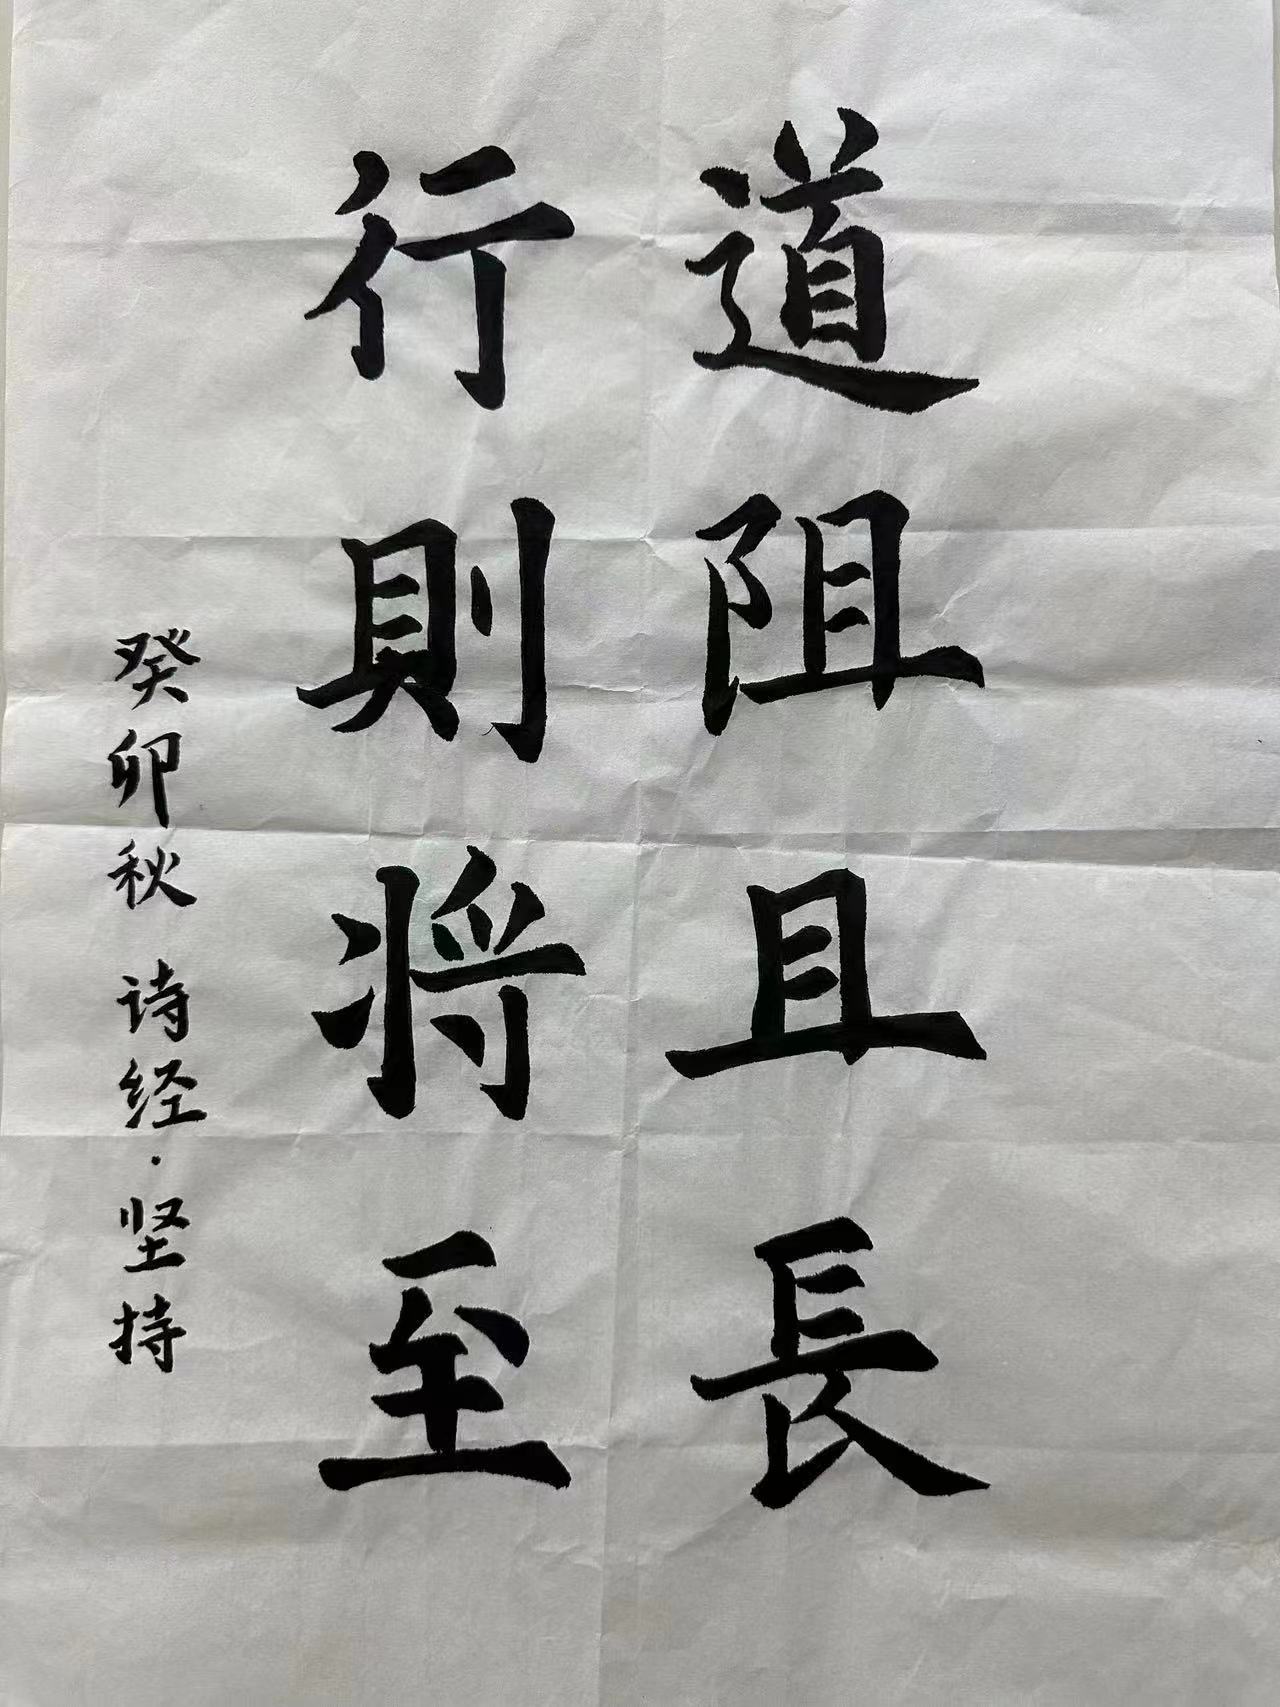 道阻且長
行則将至
癸卯秋 诗经·坚持